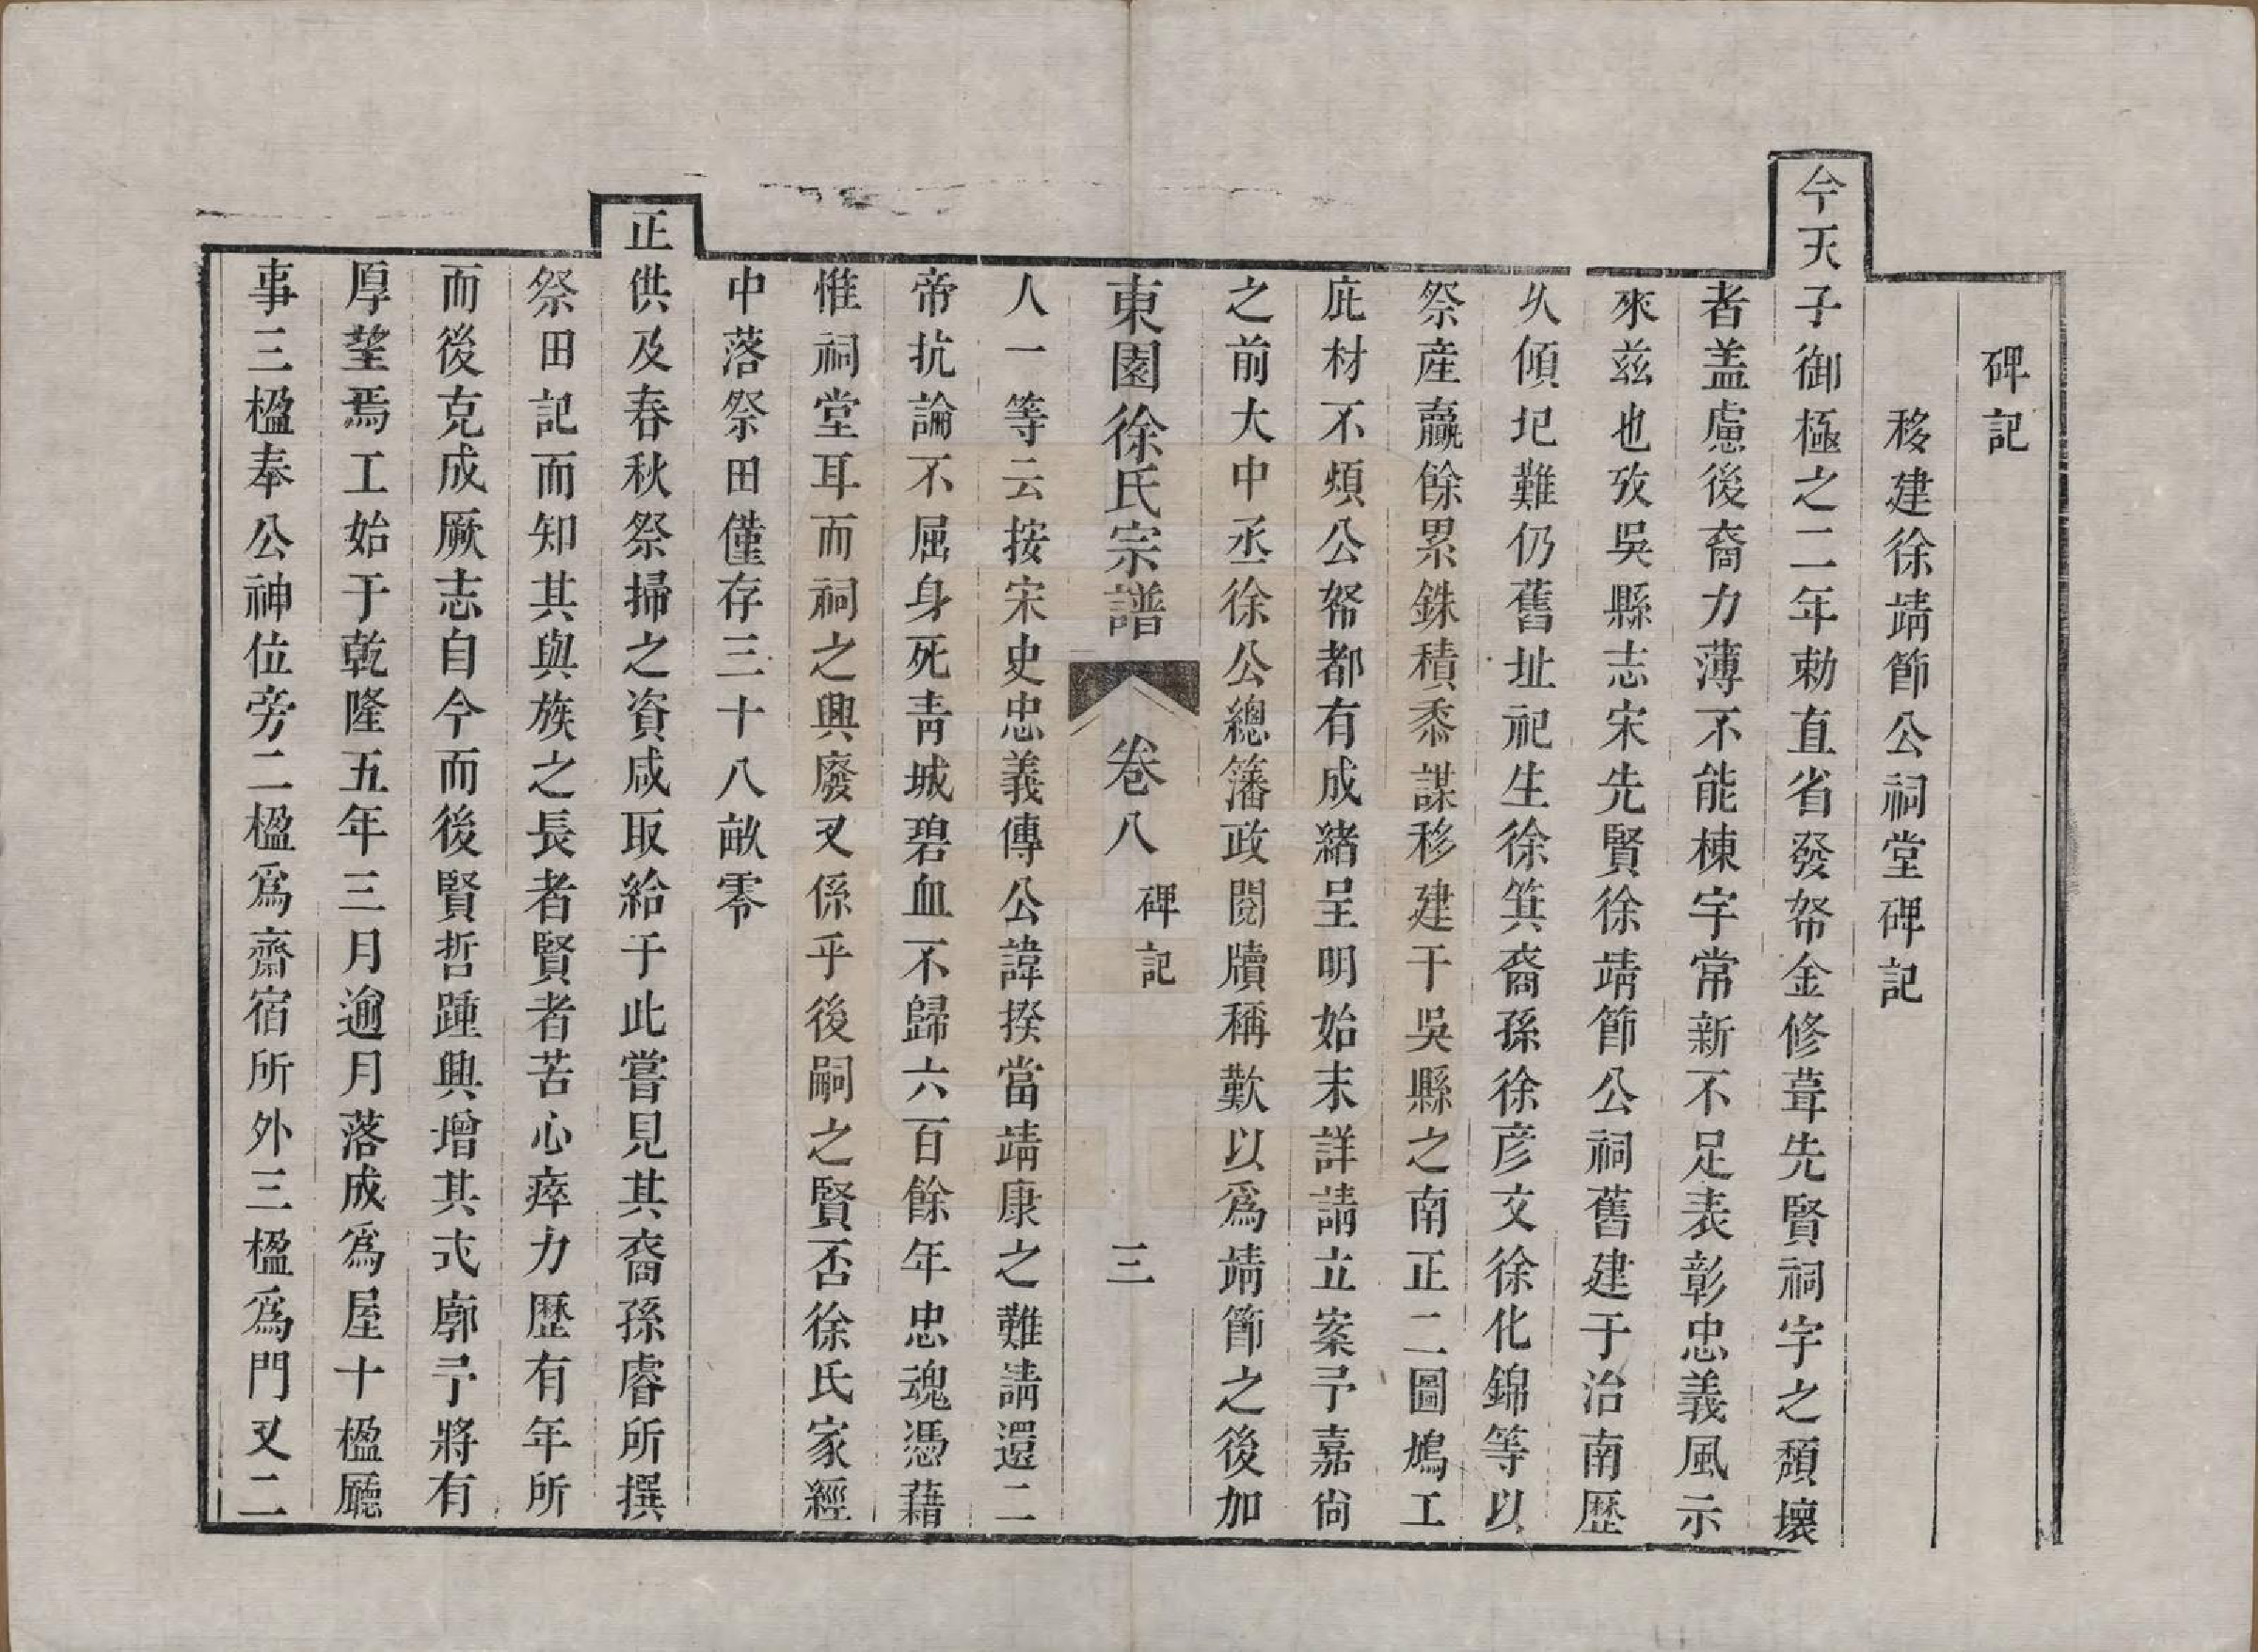 碑記
移建徐靖節公祠堂碑記
今天子御極之二年勅直省發帑金修葺先賢祠宇之頹壞
者盖慮後裔力薄不能棟宇常新不足表彰忠義風示
來兹也攷吳縣志宋先賢徐靖節公祠舊建于治南歷
久傾圯難仍舊址祀生徐箕裔孫徐彦文徐化錦等以
祭産嬴餘累銖積黍謀移建于吳縣之南正二圖鳩工
庇材不煩公帑都有成緒呈明始末詳請立案予嘉尙
之前大中丞徐公總藩政閱牘稱歎以爲靖節之後加
東園徐氏宗譜 卷八 碑記 三
人一等云按宋史忠義傳公諱揆當靖康之難請還二
帝抗論不屈身死靑城碧血不歸六百餘年忠魂憑藉
惟祠堂耳而祠之興廢又係乎後嗣之賢否徐氏家經
中落祭田僅存三十八畝零
正供及春秋祭掃之資咸取給于此嘗見其裔孫睿所撰
祭田記而知其與族之長者賢者苦心瘁力歷有年所
而後克成厥志自今而後賢哲踵興增其式廓予將有
厚望焉工始于乾隆五年三月逾月落成爲屋十楹廳
事三楹奉公神位旁二楹爲齋宿所外三楹爲門又二